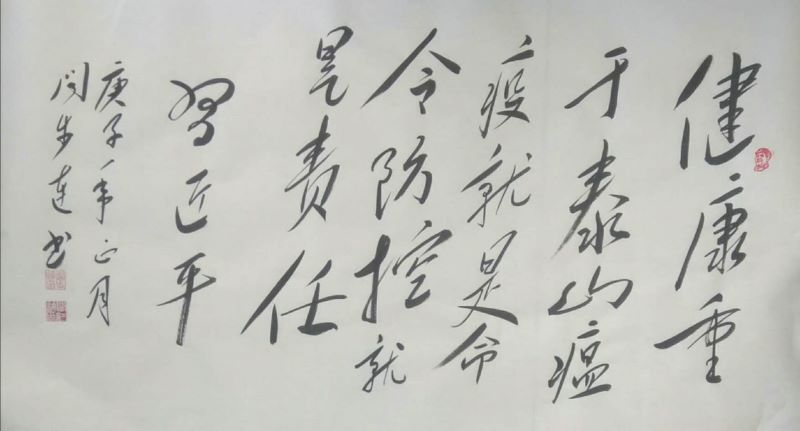 健康重
于泰山瘟
疫就是命
令防控就
是责任
习近平
庚子年正月
闫步连书